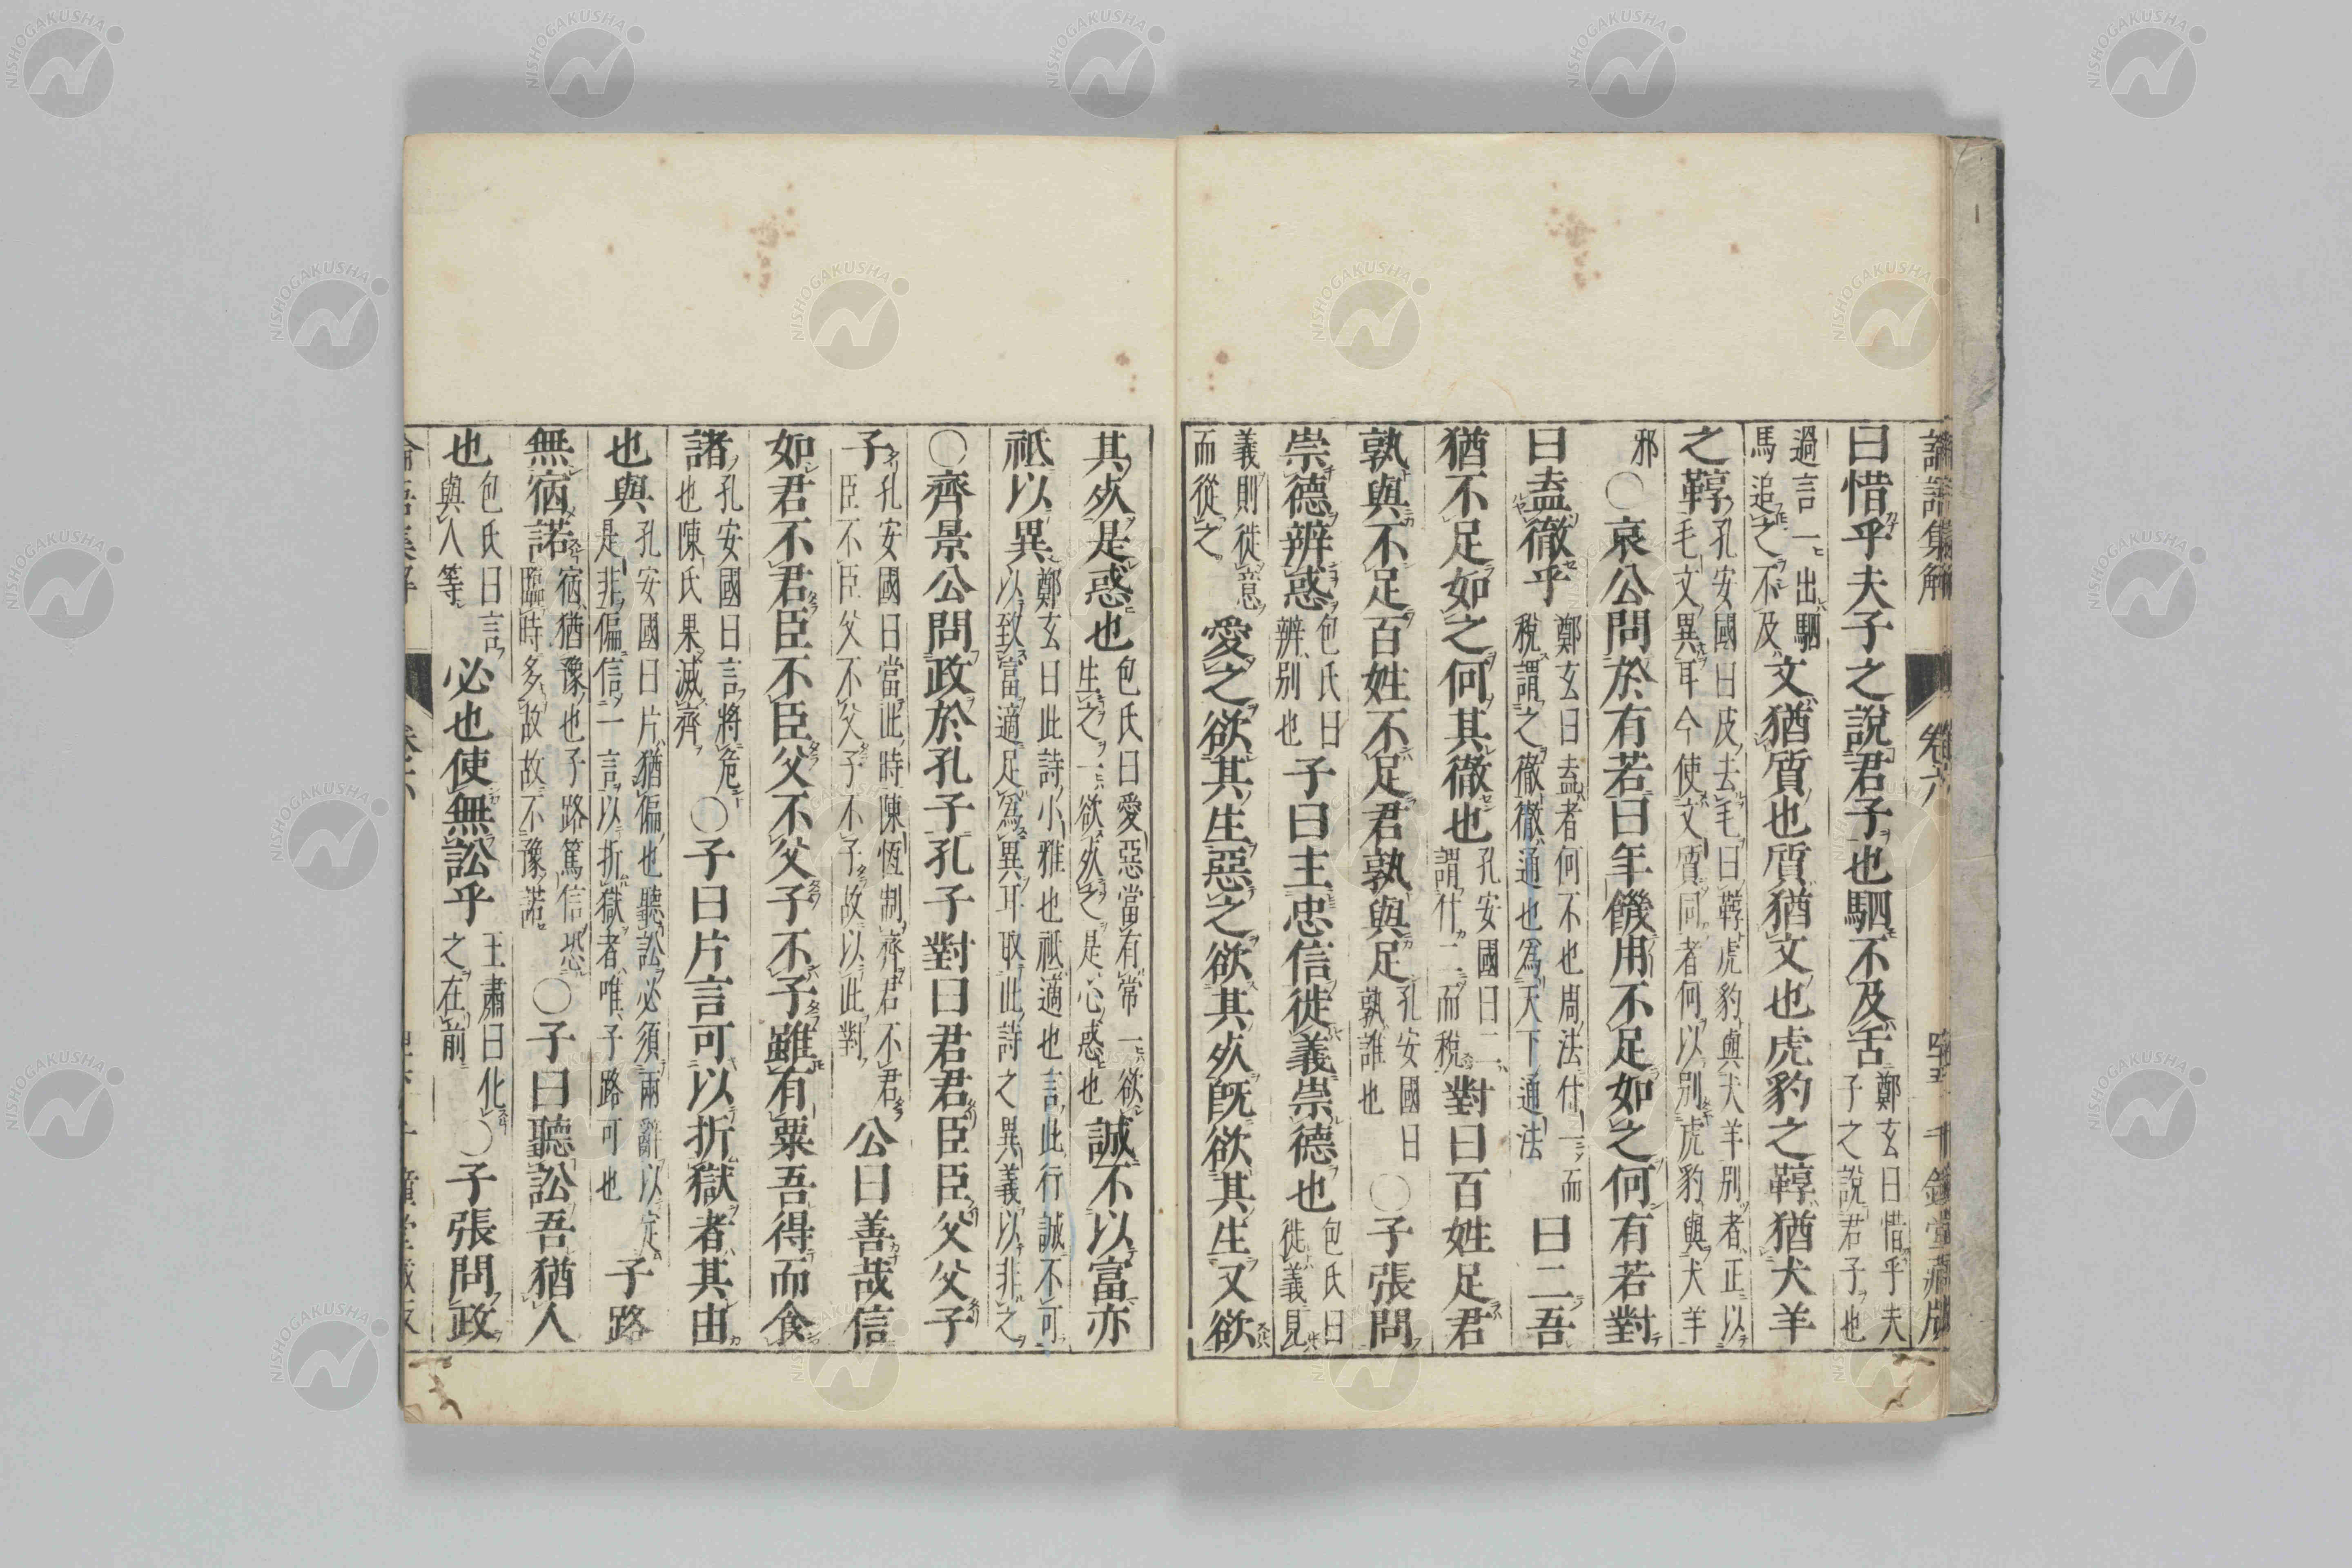 論語集解
卷六
千鍾堂藏版
曰惜乎夫子之說君子也駟不及舌鄭玄曰惜乎夫子之說君子也
過言一出駟馬追之不及文猶質也質猶文也虎豹之鞟猶犬羊
之鞟孔安國曰皮去毛曰鞟虎豹與犬羊別者正以毛文異耳今使文質同者何以別虎豹與犬羊
邪〇哀公問於有若曰年饑用不足如之何有若對
曰盍徹乎鄭玄曰盍者何不也周法什一而稅謂之徹徹通也為天下通法曰二吾
猶不足如之何其徹也孔安國曰二謂什二而稅對曰百姓足君
孰與不足百姓不足君孰與足孔安國曰孰誰也〇子張問
崇德辨惑包氏曰辨別也子曰主忠信徙義崇德也包氏曰徙義見
義則徙意而從之愛之欲其生惡之欲其死既欲其生又欲
其死是惑也包氏曰愛惡當有常一欲生之一欲死之是心惑也誠不以富亦
祇以異鄭玄曰此詩小雅也祇適也言此行誠不可以致富適足為異耳取此詩之異義以非之
〇齊景公問政於孔子孔子對曰君君臣臣父父子
子孔安國曰當此時陳恆制齊君不君臣不臣父不父子不子故以此對公曰善哉信
如君不君臣不臣父不父子不子雖有粟吾得而食
諸孔安國曰言將危也陳氏果滅齊〇子曰片言可以折獄者其由
也與孔安國曰片猶偏也聽訟必須兩辭以定是非偏信一言以折獄者唯子路可也子路
無宿諾宿猶豫也子路篤信恐臨時多故故不豫諾〇子曰聽訟吾猶人
也包氏曰言與人等必也使無訟乎王肅曰化之在前〇子張問政
NISHOGAKUSHA